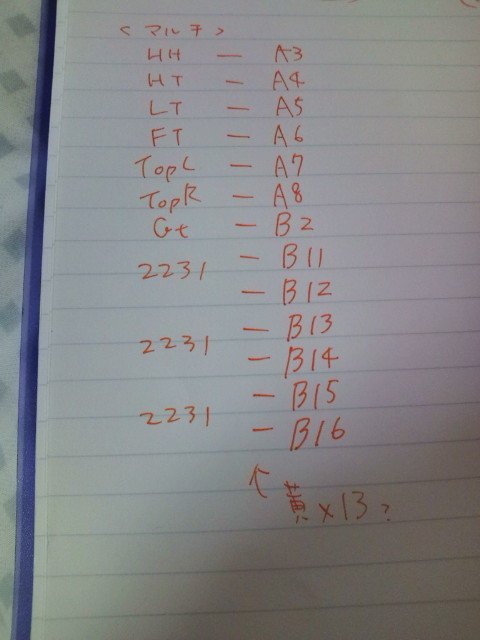 <マルチ>
HH - A3
HT - A4
LT - A5
FT - A6
TopL - A7
TopR - A8
Gt - B2
2231 - B11
- B12
2231 - B13
- B14
2231 - B15
- B16
↑
黄×13?